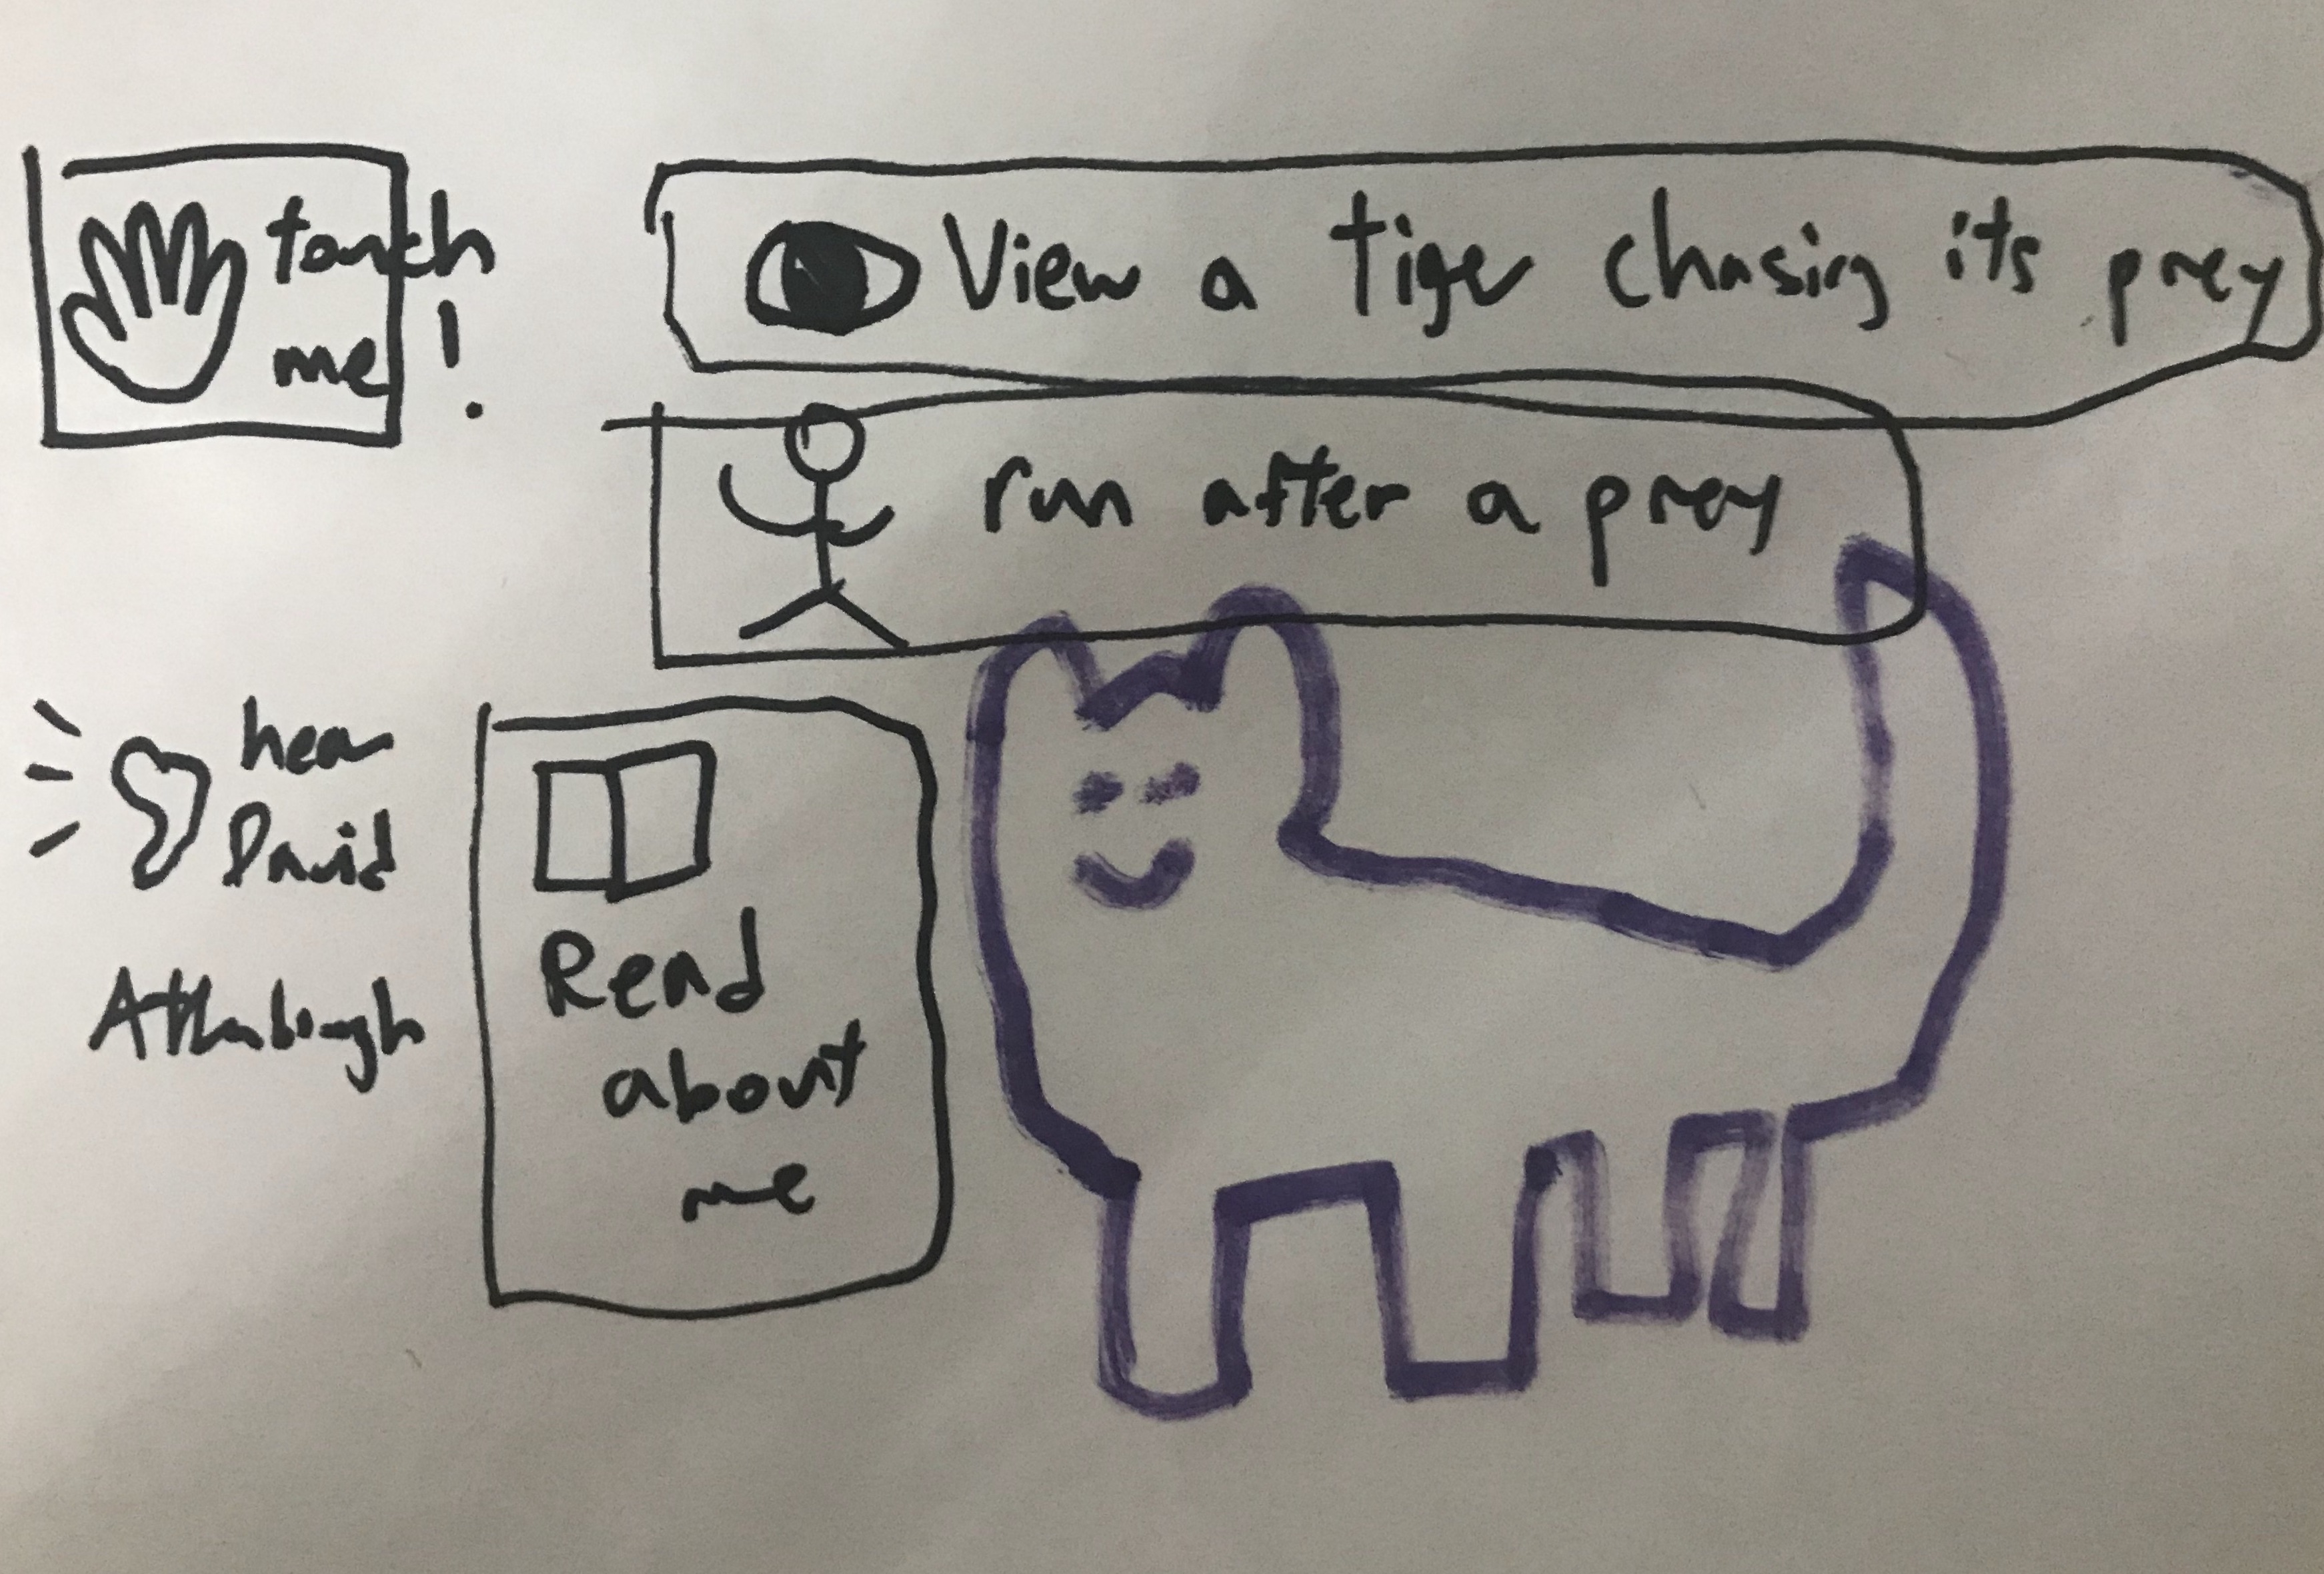 touch
me!
View a tiger chasing its prey
run after a prey
hear
David
Attenborough
Read
about
me